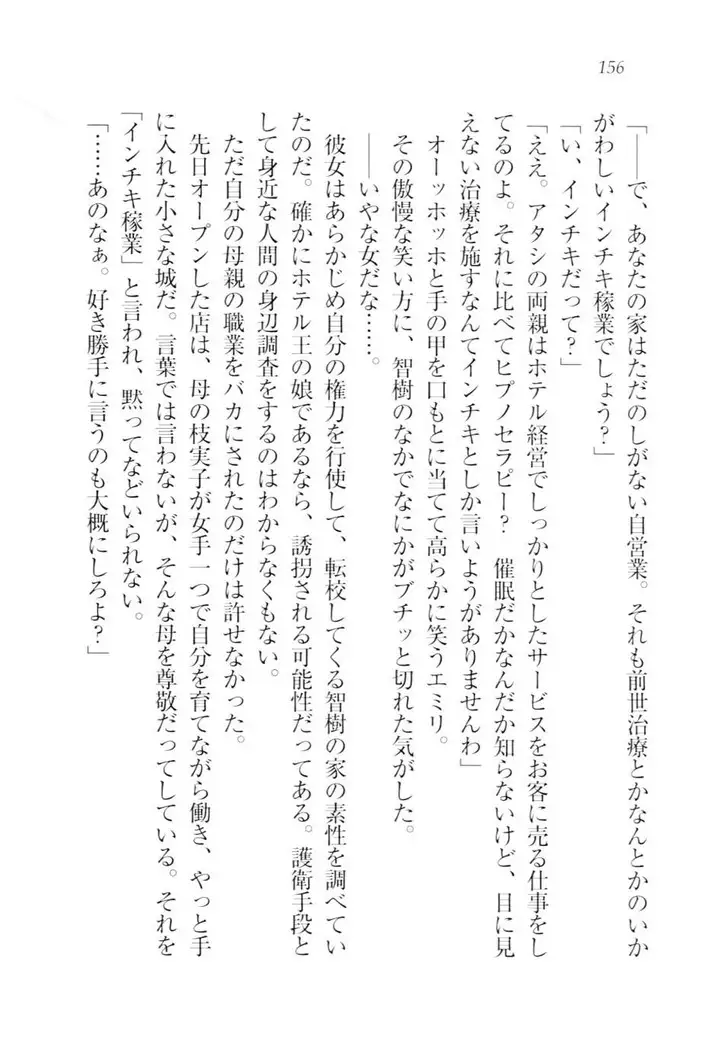 156
「――で、あなたの家はただのしがない自営業。それも前世治療とかなんとかのいか
がわしいインチキ稼業でしょう?」
「い、インチキだって?」
「ええ。アタシの両親はホテル経営でしっかりとしたサービスをお客に売る仕事をし
てるのよ。それに比べてヒプノセラピー? 催眠だかなんだか知らないけど、目に見
えない治療を施すなんてインチキとしか言いようがありませんわ」
オーッホッホと手の甲を口もとに当てて高らかに笑うエミリ。
その傲慢な笑い方に、智樹のなかでなにかがブチッと切れた気がした。
――いやな女だな……。
彼女はあらかじめ自分の権力を行使して、転校してくる智樹の家の素性を調べてい
たのだ。確かにホテル王の娘であるなら、誘拐される可能性だってある。護衛手段と
して身近な人間の身辺調査をするのはわからなくもない。
ただ自分の母親の職業をバカにされたのだけは許せなかった。
先日オープンした店は、母の枝実子が女手一つで自分を育てながら働き、やっと手
に入れた小さな城だ。言葉では言わないが、そんな母を尊敬だってしている。それを
「インチキ稼業」と言われ、黙ってなどいられない。
「……あのなぁ。好き勝手に言うのも大概にしろよ?」